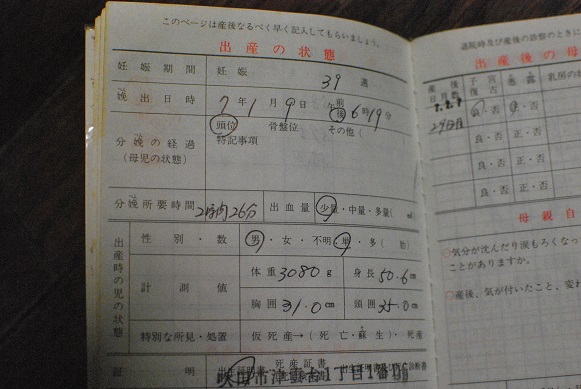 このページは産後なるべく早く記入してもらいましょう。
出産の状態
妊娠期間 妊娠 39 週
娩出日時 7年1月9日 午前後6時19分
分娩の経過 頭位 骨盤位 その他(
(母児の状態) 特記事項
分娩所要時間 2時間26分 出血量 少量・中量・多量( ml
出産時の児の状態
性別・数 男・女・不明 単・多( 胎)
計測値 体重3080g 身長50.6cm
胸囲31.0cm 頭囲35.0cm
特別な所見・処置 仮死産→(死亡・蘇生)・死産
証明 死産証書
吹田市津雲台1丁目1番D6
退院時及び産後の診察のときに
出産後の母
産後日月数 子宮復古 悪露 乳房の
良・否 正・否
良・否 正・否
良・否 正・否
良・否 正・否
母親自
○気分が沈んだり涙もろくなっ
ことがありますか。
○産後、気が付いたこと、変わ